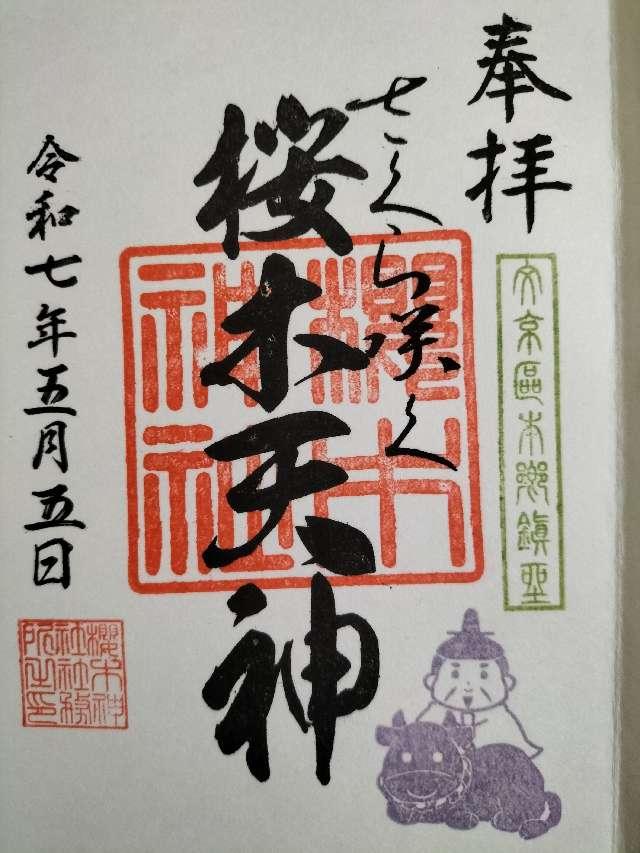 奉拝
文京區本郷鎮座
さくら咲く
桜木天神
櫻木神社
令和七年五月五日
櫻木神社社務所之印